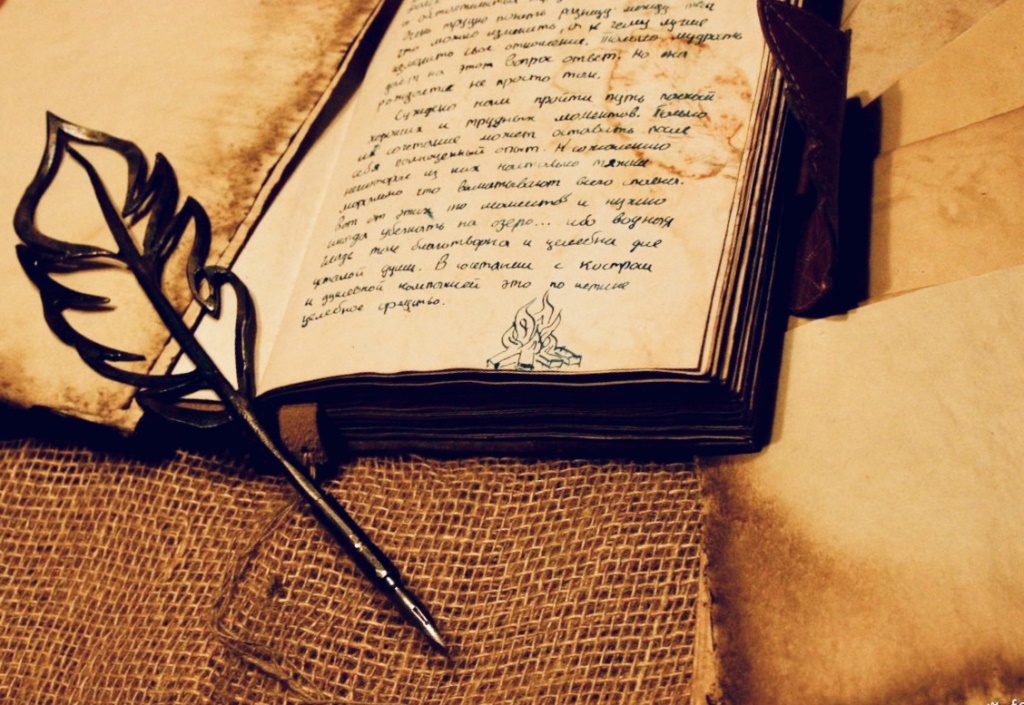 очень трудно понять разницу между тем
что можно изменить, а к чему лучше
изменить свое отношение. Только мудрость
даст на этот вопрос ответ. Но она
рождается не просто так.
Суждено нам пройти путь
хороших и трудных моментов. Только
их сочетание может оставить после
себя полноценный опыт. К сожалению
некоторые из них настолько тяжки
морально что выматывают всего
вот от этих то моментов и нужно
иногда убежать на озеро... ибо водная
гладь тиха благотворна и целебна для
усталой души. В сочетании с костром
и душевной компанией это по истине
целебное средство.